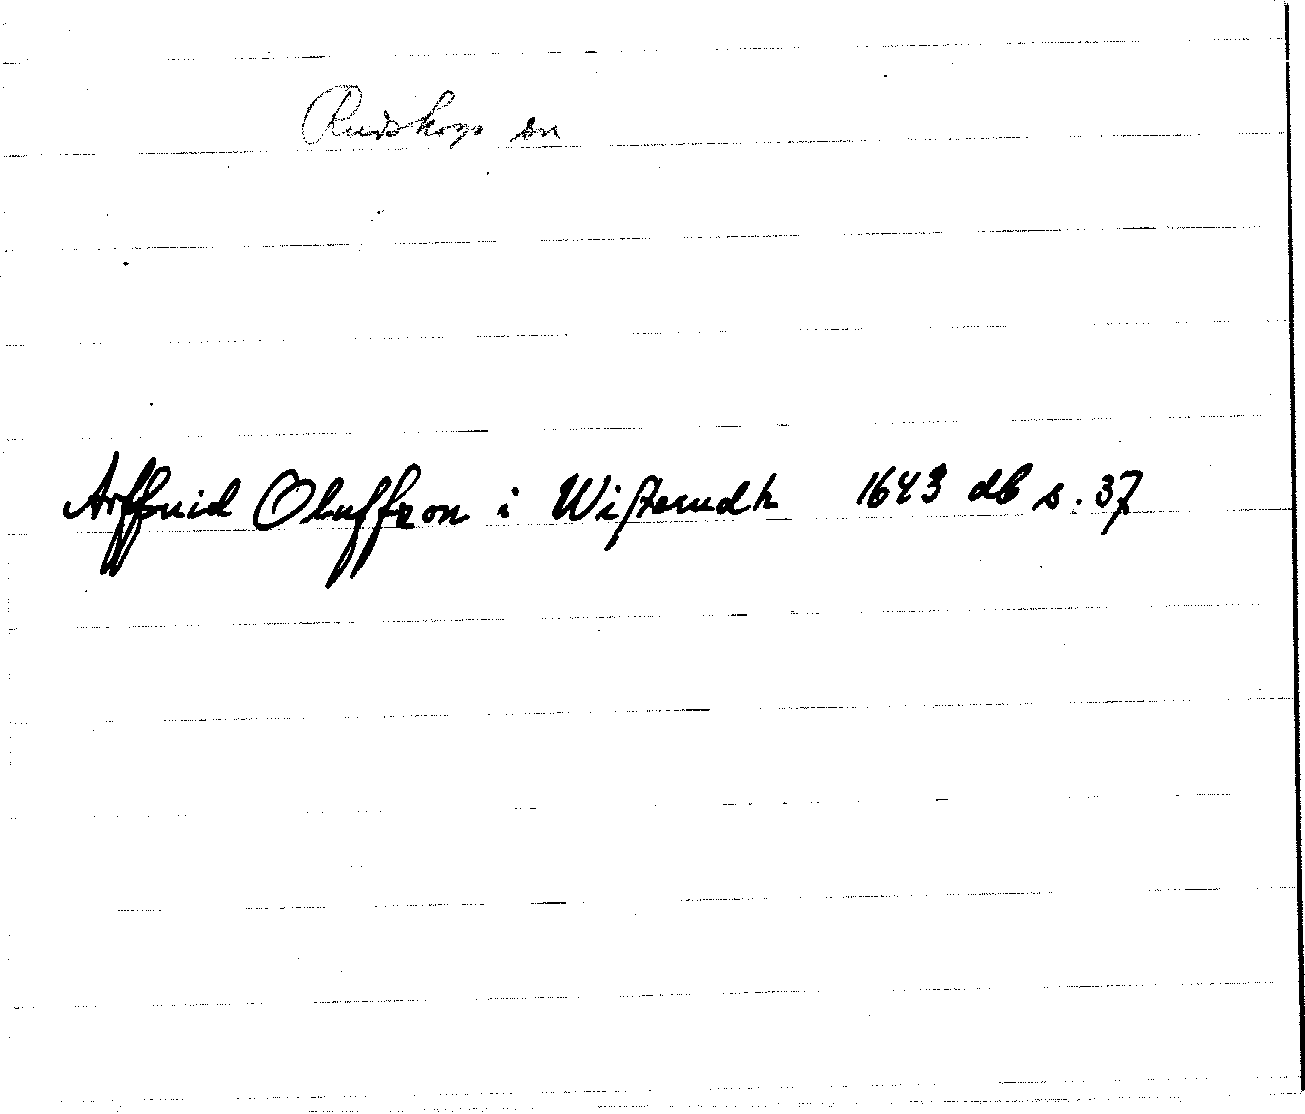 Rudskoga sn
Arffuid Oluffzon i Wisterudh 1643 db s. 37